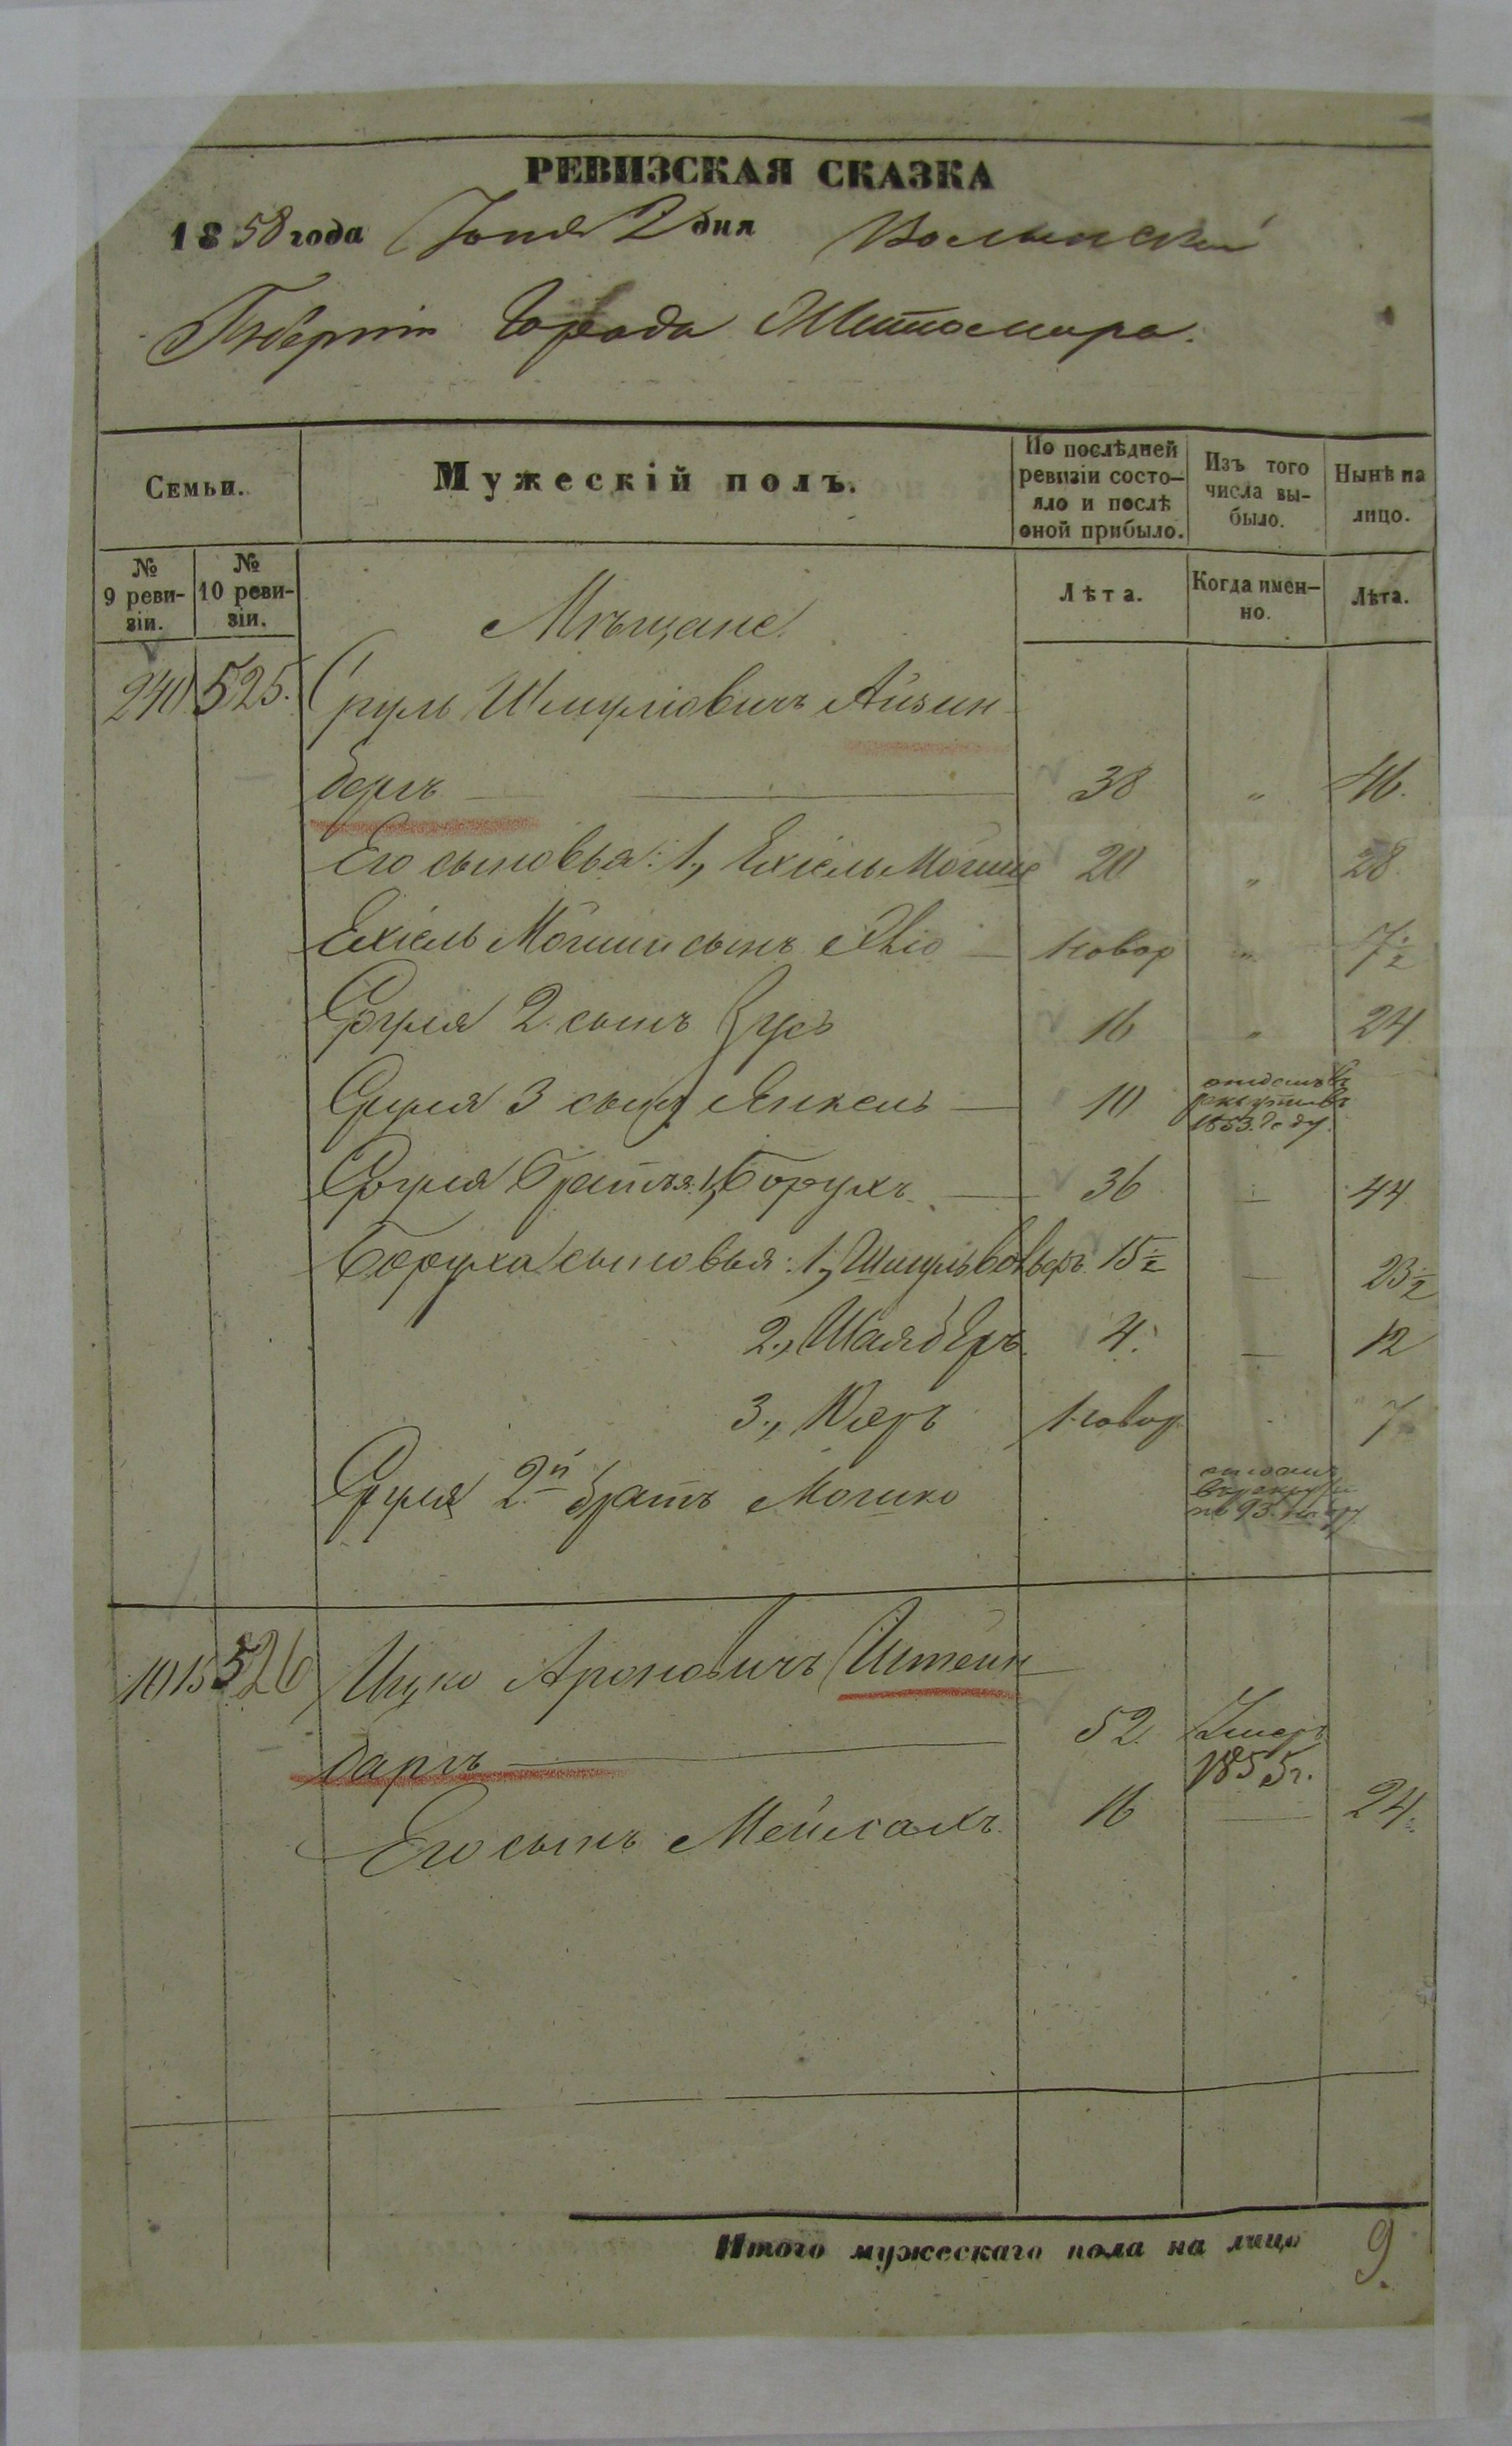 РЕВИЗСКАЯ СКАЗКА
1858 года Іюня 2 дня Волынской
Губерніи Города Житомира.
Семьи.
Мужескій полъ.
По послѣдней ревизіи состо-
яло и послѣ оной прибыло.
Изъ того числа вы-
было.
Нынѣ на лицо.
№ 9 реви-
зіи.
№ 10 реви-
зіи.
Лѣта.
Когда имен-
но.
Лѣта.
Мѣщане
240 525. Сруль Шмуліовичъ Айзин-
бергъ 38 " 46.
Его сыновья: 1, Ехіель Мошше 20 " 28.
Ехіель Мошши сынъ новор " 7½
Сруля 2 сынъ Зусь 16 " 24
Сруля 3 сынъ Янкель 10 отданъ въ
рекруты въ
1853. году.
Сруля братья: 1, Борухъ 36 — 44
Боруха сыновья: 1, Шмуль Вольфъ 15½ — 23½
2., Шаяберъ 4. — 12
3., новор 7
Сруля 2й братъ Мошко отданъ
въ рекруты
1015 526 Ицко Ароновичъ Штейн-
баргъ 52. Умеръ
1855 г.
Его сынъ Мейлахъ. 16 — 24.
Итого мужескаго пола на лицо 9.